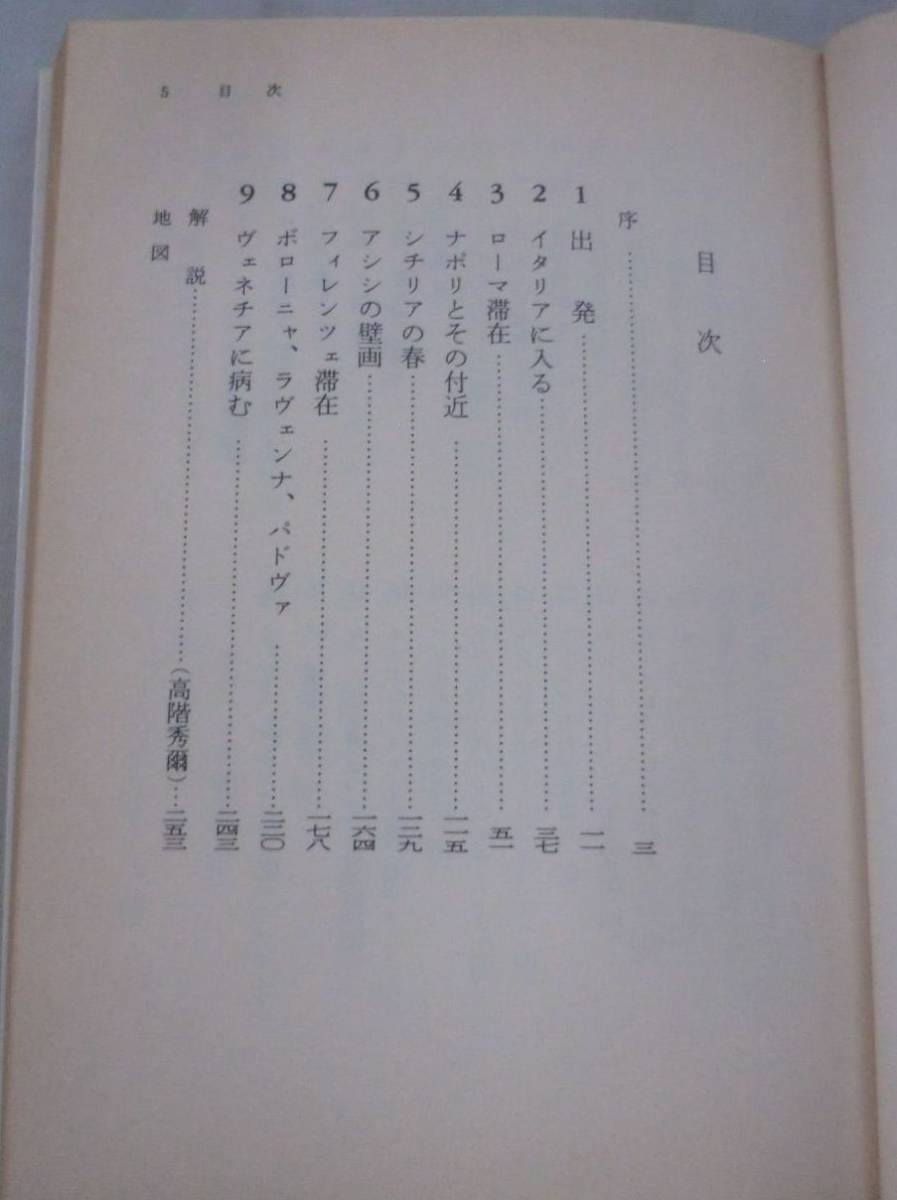 5 目次
目次
序……三
1 出発……一一
2 イタリアに入る……三七
3 ローマ滞在……五一
4 ナポリとその付近……一一五
5 シチリアの春……一二九
6 アシシの壁画……一六四
7 フィレンツェ滞在……一七八
8 ボローニャ、ラヴェンナ、パドヴァ……二二〇
9 ヴェネチアに病む……二四三
解説……(高階秀爾)…二五三
地図